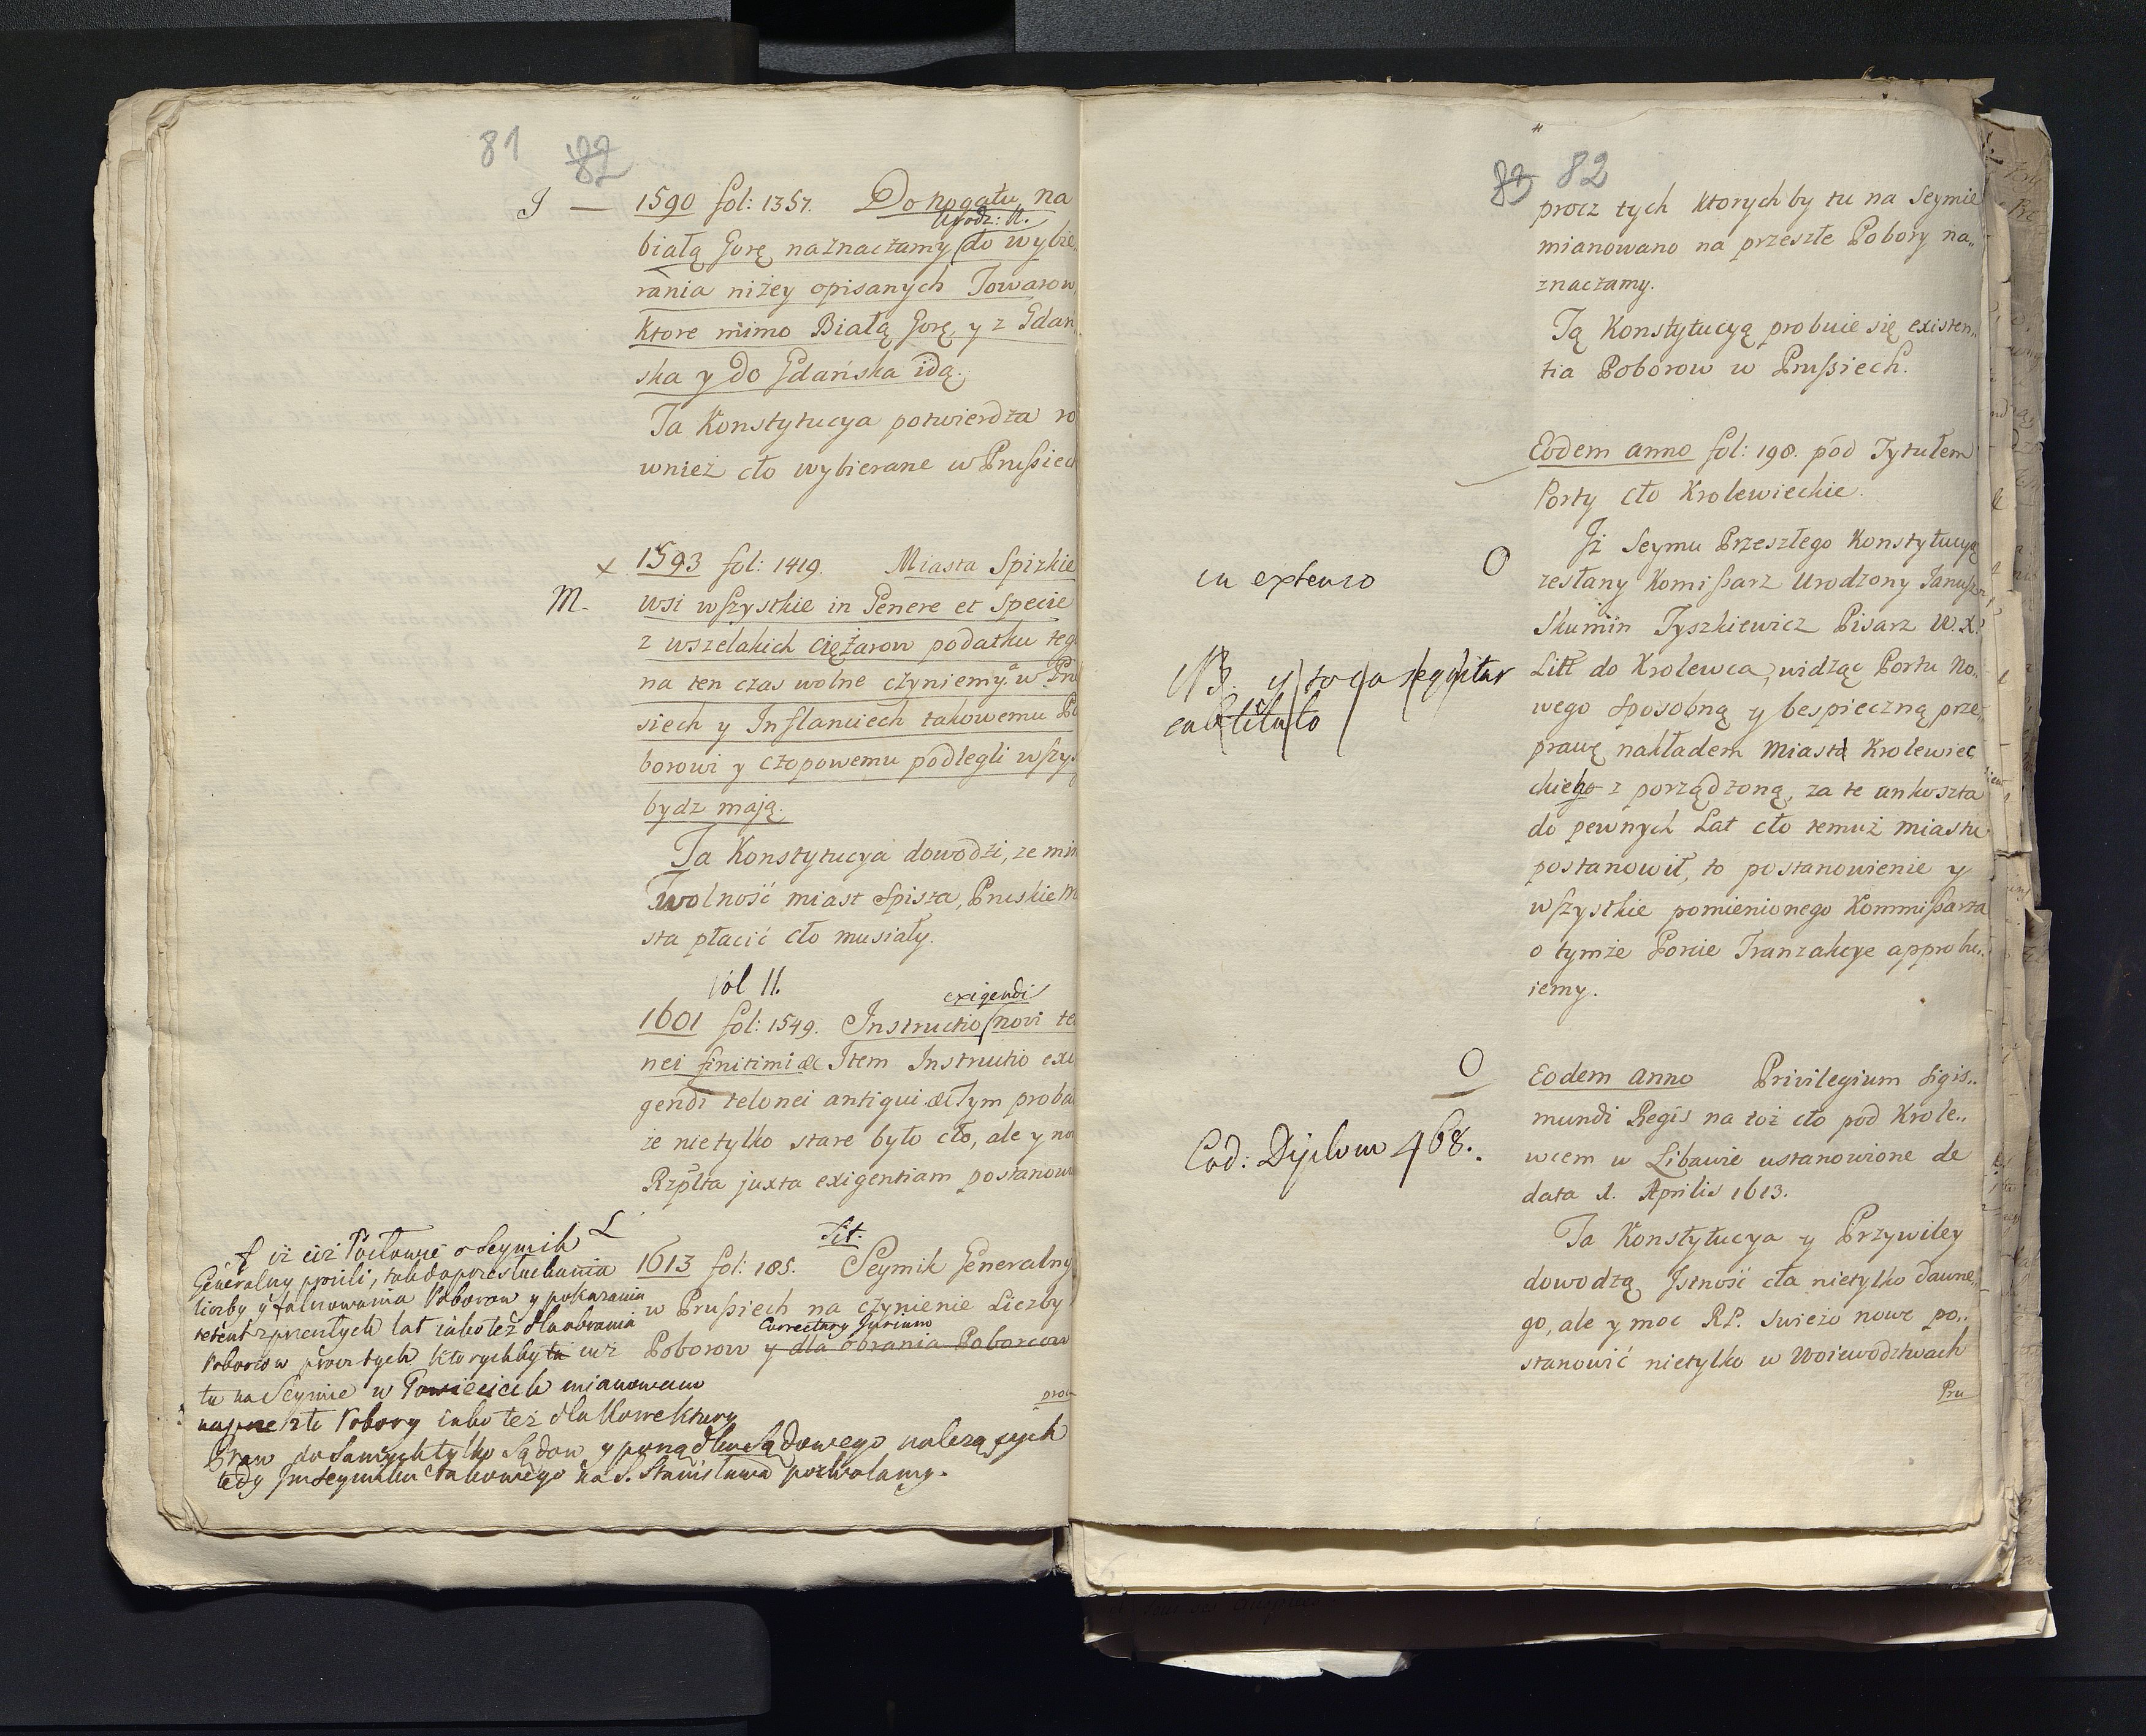 81 82
J — 1590 fol: 1357. Do nogatu, na
Urodz: N.
białą Gorę naznaczamy do wybie„
rania niżey opisanych Towarow,
ktore mimo Białą Gorę, y z Gdań
ska y do Gdańska idą.
Ta Konstytucya potwierdza ro
wnież cło wybierane w Prußiech
x 1593 fol: 1419. Miasta Spizkie
M. wsi wszystkie in Genere et Specie
z wszelakich ciężarow podatku tego
na ten czas wolne czyniemy. a w Pru
siech y Inflanciech takowemu Po
borowi y czopowemu podlegli wszy.
bydz mają.
Ta Konstytucya dowodzi, ze mim
wolność miast Spisza, Pruskie M
sta płacić cło musiały.
Vol II.
exigendi
1601 fol: 1549. Instructio novi te
nei finitimi &c Item Instructio exi
gendi telonei antiqui &c Tym proba
że nietylko stare było cło, ale y no
Rzplta juxta exigentiam postanow
L
Tit.
1613 fol: 185. Seymik Generalny
w Prußiech na czynienie Liczby
Correctury Jurium
Poborow y dla obrania Poborcow
proc
iż ciż Posłowie o Seymik
Generalny prosili, tak do przesłuchania
liczby y folrowania Poborow y pokazania
retent z przeszłych lat iako też dla obrania
Poborcow procz tych ktorychby tu iuż
tu na Seymie w Powieciech mianowano
na przeszłe Pobory iako też dla Korrektury
Praw do samych tylko Sądow y porządku Sądowego należących
tedy Im seymiku takowego na S. Stanisława pozwalamy.
83 82
procz tych ktorychby tu na Seymie
mianowano na przeszłe Pobory na„
znaczamy.
Tą Konstytucyą probuie się existen„
tia Poborow w Prußiech.
Eodem anno fol: 198. pod Tytułem
Porty cło Krolewieckie.
in extenso O Jż Seymu Przeszłego Konstytucyą
zesłany Komißarz Urodzony Janusz
Skumin Tyszkiewicz Pisarz W. X.
NB. y to co sequitur Litt do Krolewca, widząc Portu No„
wego sposobną y bespieczną prze„
prawę nakładem Miasta Krolewiec
kiego z porządzoną, za te unkoszta
do pewnych Lat cło temuż miastu
postanowił, to postanowienie y
wszystkie pomienionego Kommißarza
o tymże Porcie Tranzakcye approbu„
iemy.
O Eodem anno Privilegium Sigis„
mundi Regis na toż cło pod Krole„
Cod: Diplom 468. wcem w Libawie ustanowione de
data 1. Aprilis 1613.
Ta Konstytucya y Przywiley
dowodzą Jstność cła nietylko dawne„
go, ale y moc RP. swieżo nowe po„
stanowić nietylko w Woiewodztwach
Pru